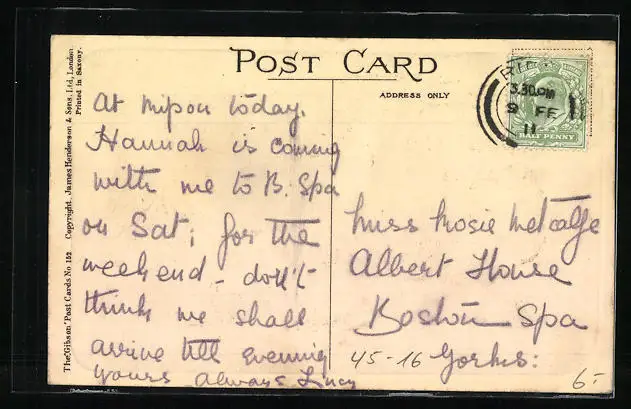 POST CARD
ADDRESS ONLY
The "Gibson" Post Cards No 152 Copyright. James Henderson & Sons, Ltd, London.
Printed in Saxony.
At Ripon today.
Hannah is coming
with me to B. Spa
on Sat; for the
weekend - don't
think we shall
arrive till evening
yours always Lucy
3.30 PM
9 FE
11
HALF PENNY
Miss Rosie Metcalfe
Albert House
Boston Spa
Yorks:
45-16
6-